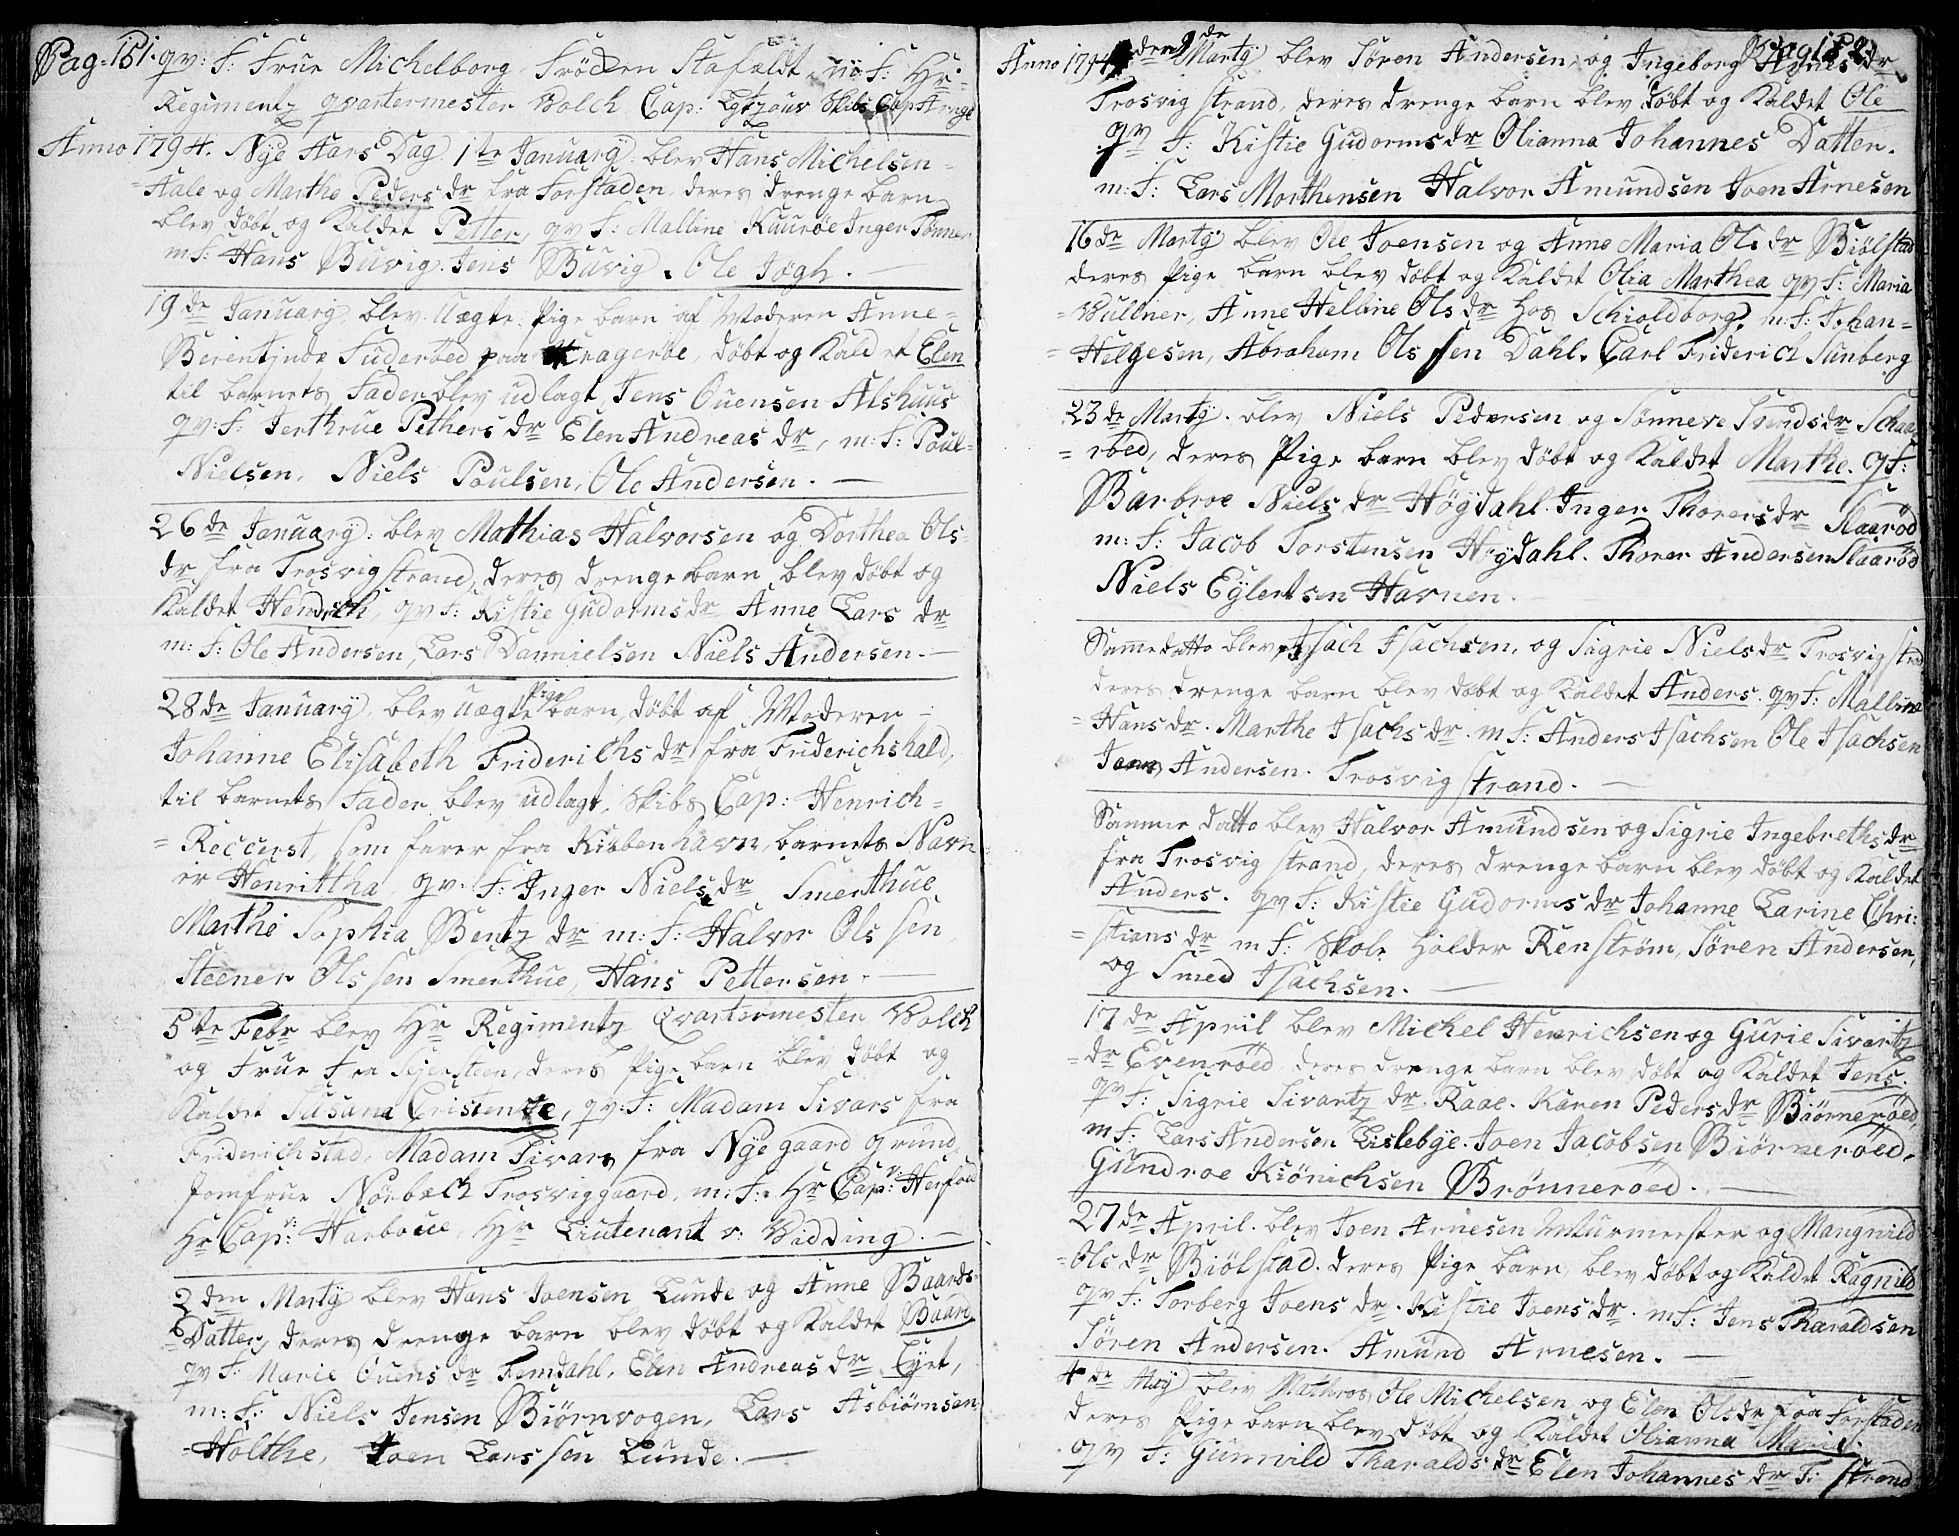 Pag. 151. qv: f: Frue Michelborg Fröcken Stafældt, m: f: Hr.
Regimentz qvartermester Wolch Cap: Skibs Cap
Anno 1794. Nye Aars Dag 1te January: blev Hans Michelsen
Aale og Marthe Peders dr fra Forstaden deres drenge barn
blev döbt og Kaldet Petter, qv f: Malline Kauröe Inger Tönner
m f: Hans Buvig. Jens Buvig. Ole Högh. —
19de January blev Uægte Pige barn af Moderen Anne
Berentjnde Suderöed paa Kragerøe, döbt og Kaldet Elen
til barnets Fader blev udlagt Jens Ouensen Alshuus
qv: f: Jerthrue Pethers dr Elen Andreas dr, m: f: Poul=
Nielsen. Niels Poulsen, Ole Andersen. —
26de January: blev Mathias Halvorsen og Dorthea Ols=
dr fra Trosvig strand, deres drenge barn blev döbt og
Kaldet Hendrich, qv f: Kistie Gudorms dr Anne Lars dr
m: f: Ole Andersen, Lars Dannielsen Niels Andersen. —
28de January, blev Uægte Pige barn, döbt af Moderen
Johanne Elisabeth Friderichs dr fra Friderichshald,
til barnets Fader blev udlagt, Skibs Cap: Henrich=
= Reccerst, som farer fra Kiöbenhavn, barnets Navn
er Henrittha, qv. f: Inger Niels dr Smerthue
Marthe Sophia Bentz dr m: f: Halvor Olssen,
Steener Olssen Smerthue, Hans Pettersen. —
5te Febr blev Hr Regimentz Qvartermester Wolch
og Frue fra deres Pige barn blev döbt og
Kaldet Susana Cristence, qv: f: Madam Sivars fra
Friderichstad, Madam Sivars fra Nye gaard grund,
Jomfrue Nörbech Trosviggaard, m: f: Hr Cap: v:
Hr Cap: v: Harboue, Hr Liutenant v: Widding. —
2den Marty blev Hans Joensen Lunde og Anne Baards=
Datter, deres drenge barn blev döbt og Kaldet Baard
qv f: Marie Ouens dr Femdahl, Elen Andreas dr Lyet,
m: f: Niels Jensen Biörnvogen, Lars Asbiörnsen
Holthe, Joen Larssen Lunde. —
Pag 152
Anno 1794 den 9de Marty blev Sören Andersen og Ingeborg Arnes dr
Trosvig strand, deres drenge barn blev döbt og Kaldet Ole
qv f: Kistie Gudorms dr Olianna Johannes Datter.
m: f: Lars Morthensen Halvor Amundsen Joen Arnesen
16de Marty blev Ole Joensen og Anne Maria Ols dr Biölstad
deres Pige barn blev döbt og Kaldet Olia Marthea qv f: Maria
Wullner, Anne Helline Ols dr hos Schioldborg, m: f: Johan=
= Helgesen, Abraham Olssen Dahl. Carl Friderich Sunberg
23de Marty. blev Niels Pedersen og Sönneve Svends dr Schaa
= röed, deres Pige barn blev döbt og Kaldet Marthe. q f:
Barbroe Niels dr Högdahl. Inger Thorers dr Slaaröd
m: f: Jacob Torstensen Högdahl. Thorer Andersen Slaaröd
Niels Eylertsen Havnen.
Samme datto blev Isach Isachsen, og Sigrie Niels dr Trosvig strand
deres drenge barn blev döbt og Kaldet Anders. qv f: Malline
= Hans dr. Marthe Isachs dr. m f: Anders Isachsen Ole Isachsen
Andersen. Trosvig strand. —
Samme datto blev Halvor Amundsen og Sigrie Ingebreths dr
fra Trosvig strand, deres drenge barn blev döbt og Kaldet
Anders. qv f: Kistie Gudorms dr Johanne Carine Chri:
= stians dr m f: Skole Holder Renström, Sören Andersen,
og Smed Isachsen. —
17de April blev Michel Henrichsen og Gurie Sivartz
= dr Evenröed, deres drenge barn blev döbt og Kaldet Jens.
qv f: Sigrie Sivartz dr. Raae. Karen Peders dr Biörneröed,
m f: Lars Andersen Lislebye. Joen Jacobsen Biörneröed.
Gundroe Kiönichsen Brönneröed. —
27de April. blev Joen Arnesen Murmester og Mangnild
= Ols dr Biölstad. deres Pige barn blev döbt og Kaldet Ragnild
qv f: Torberg Joens dr. Kistie Joens dr. m f: Jens Tharaldsen
Sören Andersen. Amund Arnesen. —
4de May blev Mathros Ole Michelsen og Elen Ols dr fra Forstaden
deres Pige barn blev döbt og Kaldet Olianna Marie.
qv f: Gunnild Tharalds dr Elen Johannes dr T: strand